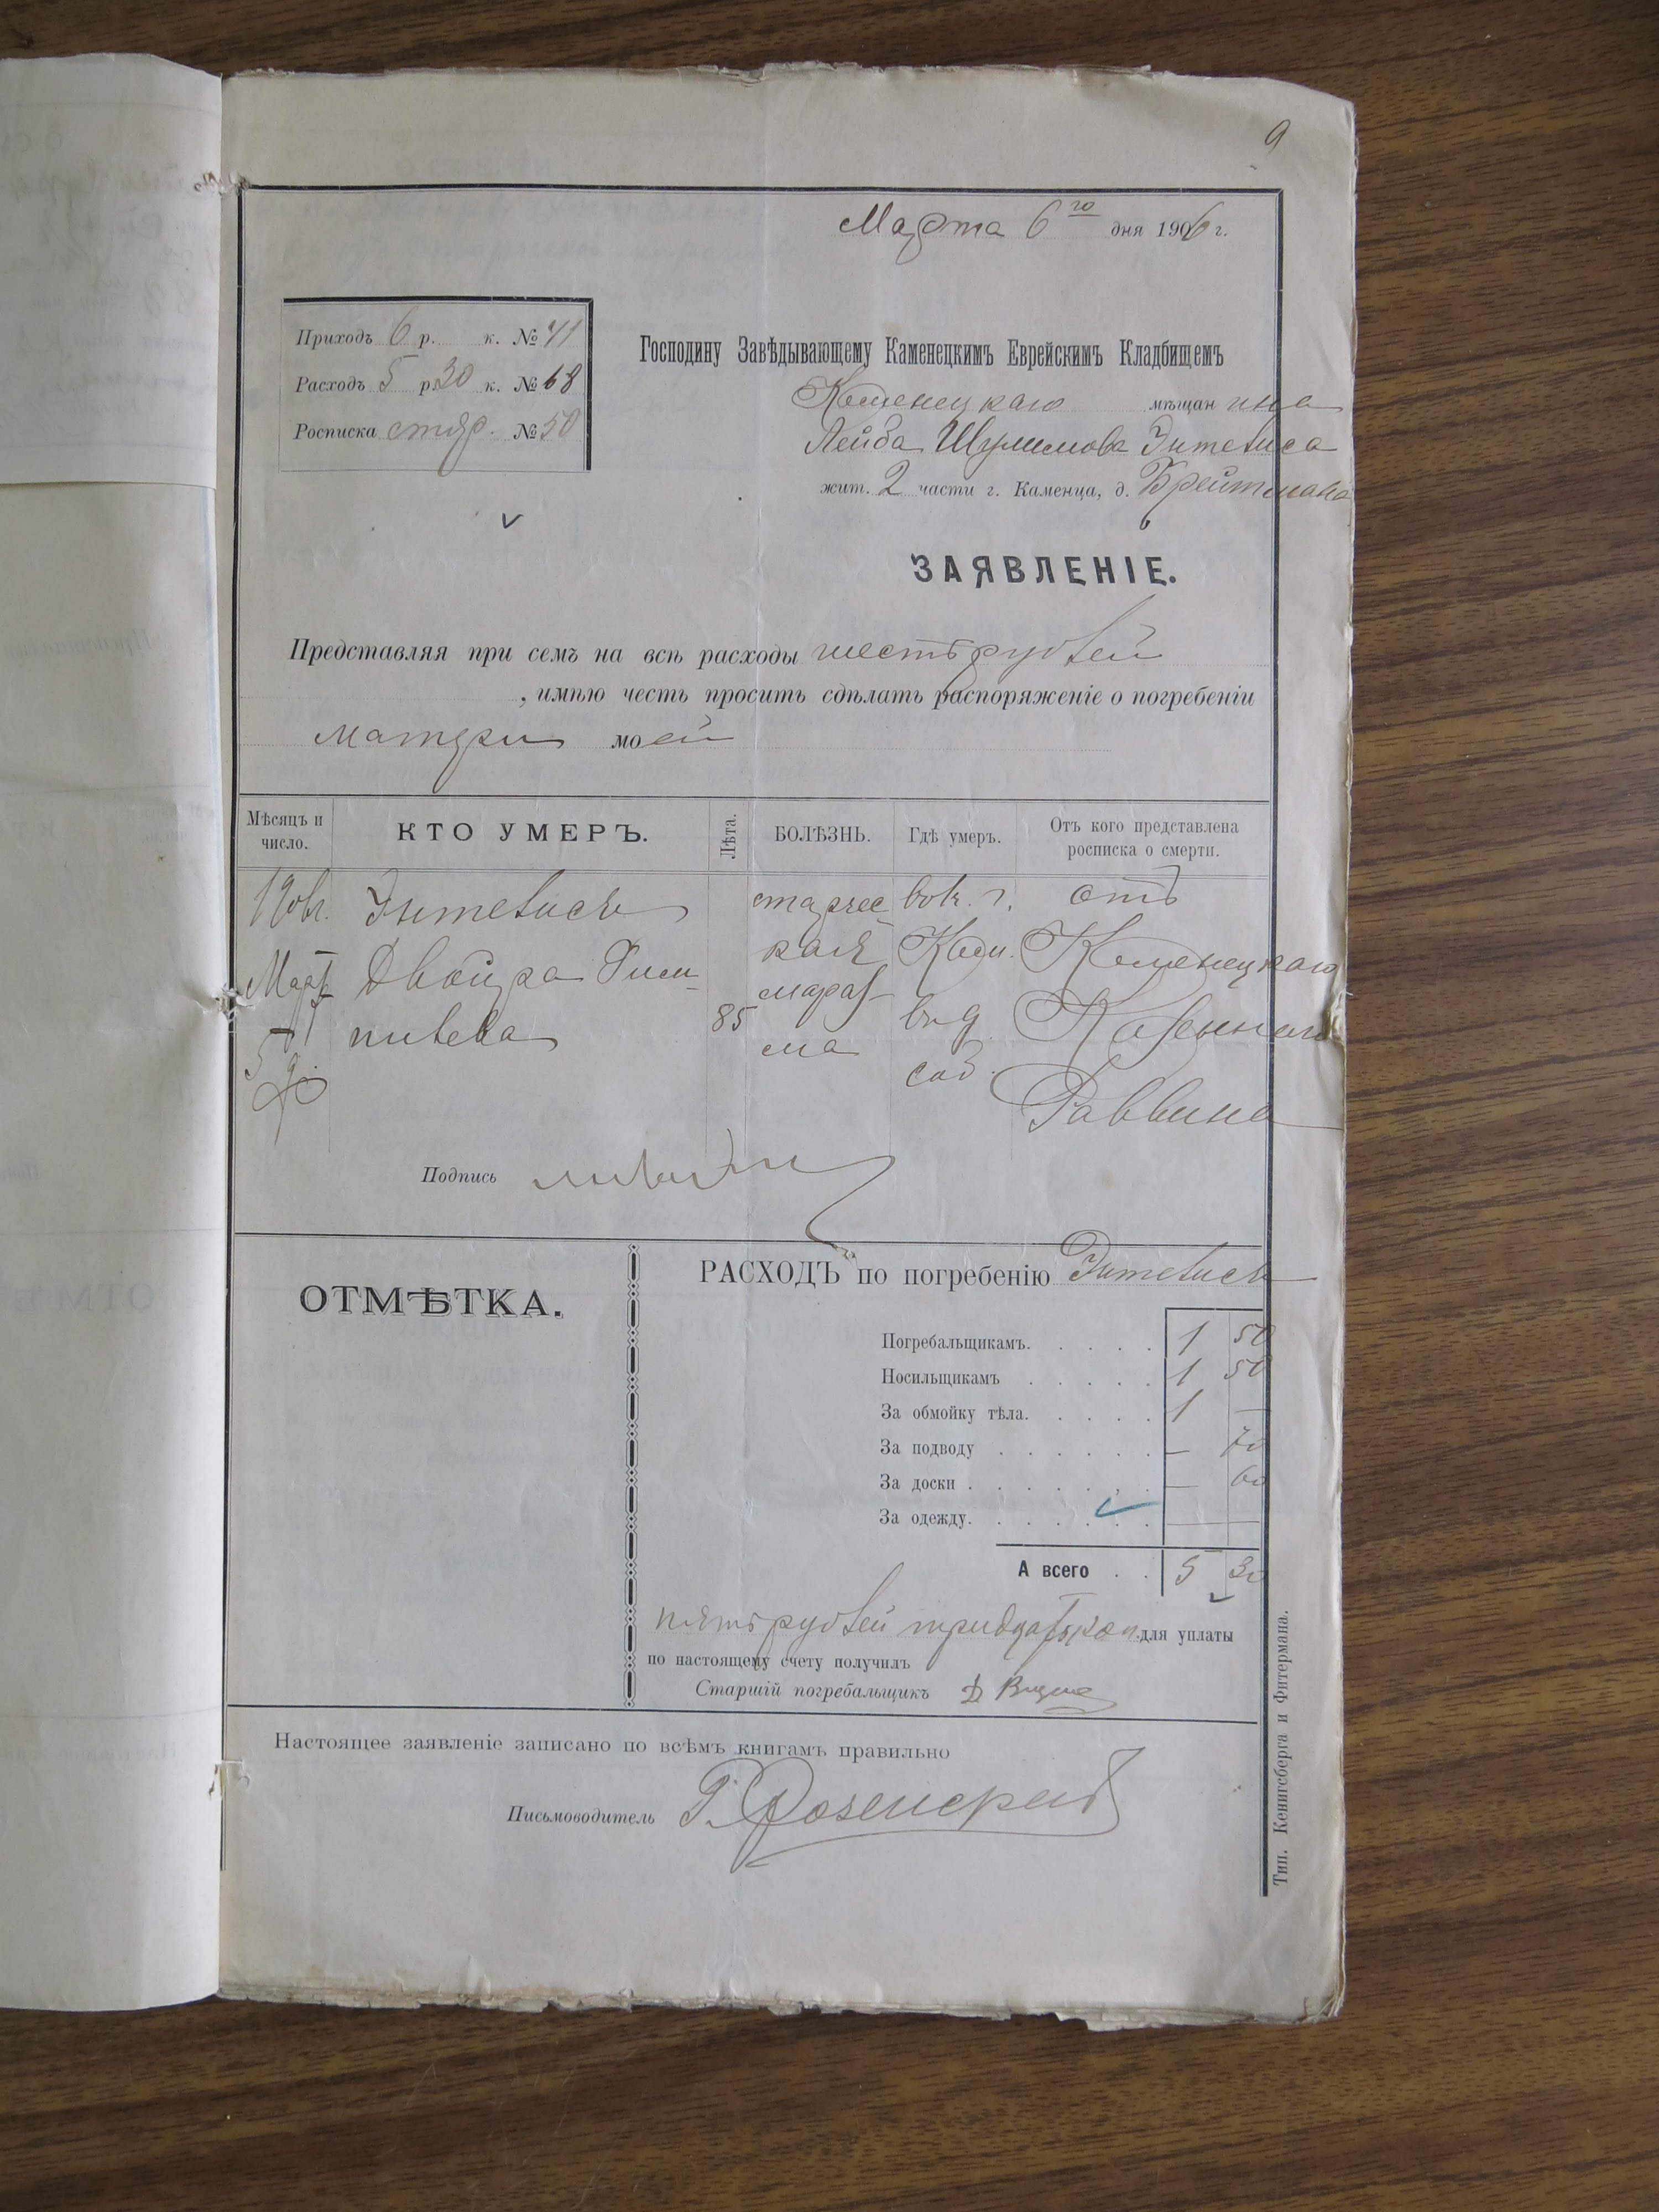 9
Марта 6го дня 1906 г.
Приходъ 6 р. к. № 41
Расходъ 5 р 30 к. № 68
Росписка стар. № 50
Господину Завѣдывающему Каменецкимъ Еврейскимъ Кладбищемъ
Каменецкаго мѣщанина
Лейба Шулимова Энтелиса
жит. 2 части г. Каменца, д. Брейтмана
ЗАЯВЛЕНІЕ.
Представляя при семъ на всѣ расходы шесть рублей
, имѣю честь просить сдѣлать распоряженіе о погребеніи
матери моей
Мѣсяцъ и число.
КТО УМЕРЪ.
Лѣта.
БОЛѢЗНЬ.
Гдѣ умеръ.
Отъ кого представлена росписка о смерти.
Март
5
Энтелисъ
Двойра
85
старчес
кая
мараз
ма
въ г.
Кам.
въ д.
соб.
отъ
Каменецкаго
Казеннаго
Раввина
Подпись
ОТМѢТКА.
РАСХОДЪ по погребенію Энтелисъ
Погребальщикамъ. 1 50
Носильщикамъ 1 50
За обмойку тѣла. 1 —
За подводу — 70
За доски — 60
За одежду. — —
А всего 5 30
пять рублей тридцать коп. для уплаты
по настоящему счету получилъ
Старшій погребальщикъ
Настоящее заявленіе записано по всѣмъ книгамъ правильно
Письмоводитель
Тип. Кенигсберга и Фитермана.